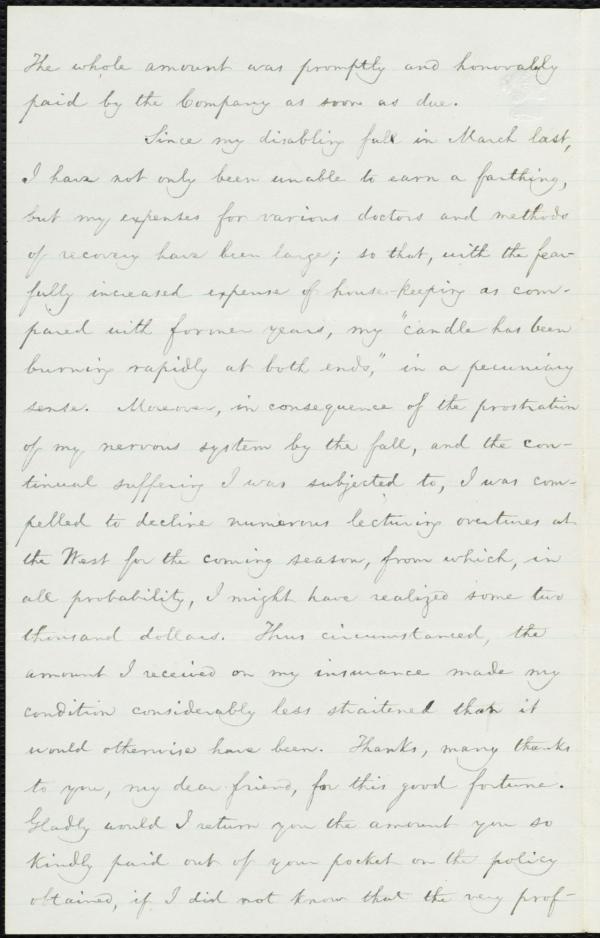 The whole amount was promptly and honorably
paid by the Company as soon as due.
Since my disabling fall in March last,
I have not only been unable to earn a farthing,
but my expenses for various doctors and methods
of recovery have been large; so that, with the fear-
fully increased expense of house-keeping as com-
pared with former years, my "candle has been
burning rapidly at both ends," in a pecuniary
sense. Moreover, in consequence of the prostration
of my nervous system by the fall, and the con-
tinual suffering I was subjected to, I was com-
pelled to decline numerous lecturing overtures at
the West for the coming season, from which, in
all probability, I might have realized some two
thousand dollars. Thus circumstanced, the
amount I received on my insurance made my
condition considerably less straitened than it
would otherwise have been. Thanks, many thanks
to you, my dear friend, for this good fortune.
Gladly would I return you the amount you so
kindly paid out of your pocket on the policy
obtained, if I did not know that the very prof-